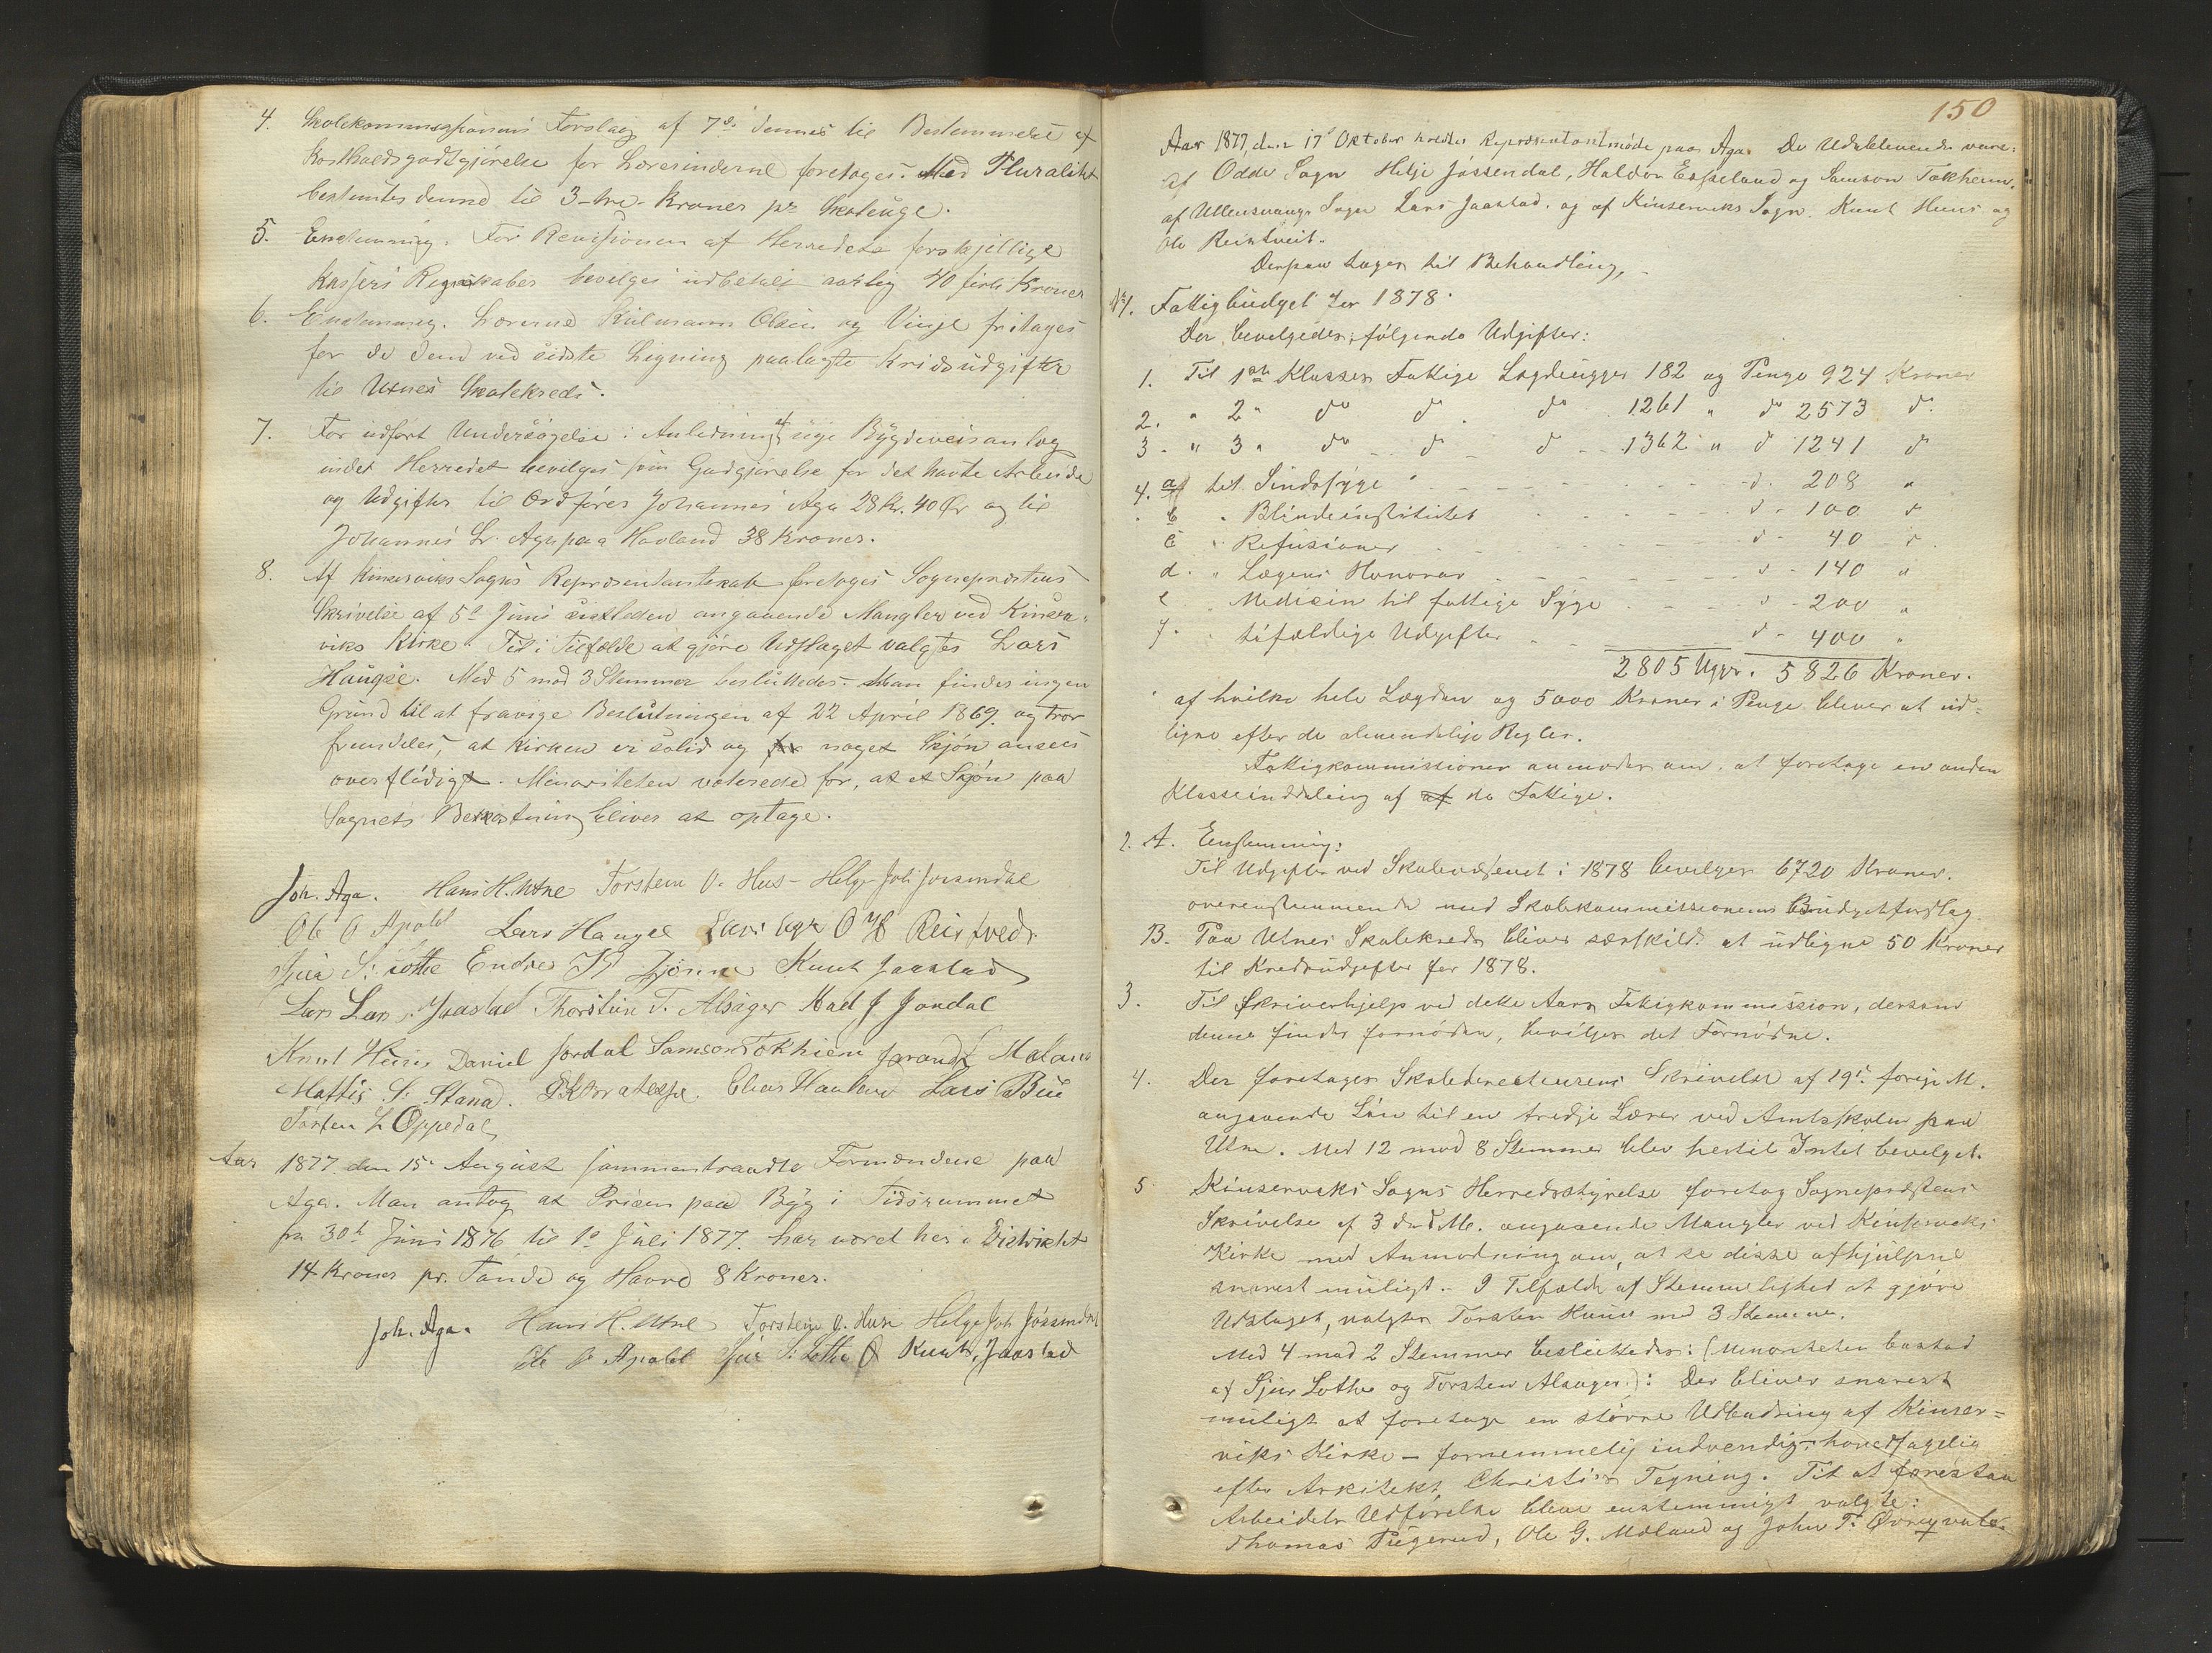 4. Skolekommissionens Forslag af 7de dennes til Bestemmelse af
Kostholdsgodtgjørelse for Lærerinderne foretoges. Med Pluralitet
bestemtes denne til 3 - tre - Kroner pr Skoleuge.
5. Enstemmig. For Revisionen af Herredets forskjellige
Kassers Regnskaber bevilges udbetalt aarlig 40 firti Kroner
6. Enstemmig. Lærerne Kulmann Olsen og Vinje fritages
for de dem ved sidste Ligning paalagte Kredsudgifter
til Utnes Skolekreds.
7. For udført Undersøgelse i Anledning af nye Bygdeveisanlæg
indet Herredet bevilges som Godgjørelse for det havte Arbeide
og Udgifter til Ordfører Johannes Aga 28 Kr. 40 Ør og til
Johannes L. Aga paa Havland 38 Kroner.
8. Af Kinserviks Sogns Repræsentantskab foretoges Sogneprestens
Skrivelse af 5te Juni sistleden angaaende Mangler ved Kinser-
viks Kirke. Til i Tilfælde at gjøre Udslaget valgtes Lars
Haugse. Med 5 mod 3 Stemmer besluttedes: Man findes ingen
Grund til at fravige Beslutningen af 22 April 1869. og tror
fremdeles, at Kirken er solid og noget Skjøn ansees
overflødigt. Minoriteten voterede for, at et Skjøn paa
Sognets Bekostning bliver at optage.
Joh. Aga. Hans H. Utne Torstein O. Hus - Helge Joh Jøssendal
Ole O Apold Lars Haugse Lars Aga O Reistved
Sjur S. Lothe Endre Tjønn Knut Jaastad
Lars Lars s. Jaastad Thorstein T. Alsager Aad J Jondal
Knut Huus Daniel Jordal Samson Tokheim Jarand Mæland
Mattis S. Stana. Elias Lars Bue
Torsten L Oppedal
Aar 1877 den 15de August sammentraadte Formændene paa
Aga. Man antog at Prisen paa Byg i Tidsrummet
fra 30te Juni 1876 til 1te Juli 1877. har været her i Distriktet
14 Kroner pr. Tønde og Havre 8 Kroner.
Joh. Aga. Hans H. Utne Torstein O. Hus Helge Joh Jøssendal
Ole O Apold Sjur S: Lothe Knut Jaastad
150
Aar 1877, den 17de Oktober holdtes Repræsentantmøde paa Aga. De Udeblevende vare:
af Odde Sogn Helje Jøssendal, Haldor Espeland og Samson Tokheim.
af Ullensvangs Sogn Lars Jaastad. og af Kinserviks Sogn. Knut Huus og
Ole Reistveit.
Derpaa toges til Behandling,
No 1. Fattigbudget for 1878.
Der bevilgedes følgende Udgifter:
1. Til 1ste Klasses Fattige Lægdeuger 182 og Penge 924 Kroner
2. " 2" do do do 1261 " do 2573 do
3 " 3" do do do 1362 " do 1241 do
4. a til Sindssyge d. 208 "
b " Blindeinstitutet d - 100 do
c " Refusioner d - 40 do
d. " Lægens Honorar d - 140 "
e Medicin til fattige Syge d - 200 "
f. tilfældige Udgifter d - 400 "
2805 Uger. 5826 Kroner.
af hvilke hele Lægden og 5000 Kroner i Penge bliver at ud-
ligne efter de almendelige Regler.
Fattigkommissionen anmodes om, at foretage en anden
Klasseinddeling af af de Fattige.
2. A. Eenstemmig:
Til Udgifter ved Skolevæsenet i 1878 bevilges 6720 Kroner.
overenstemmende med Skolekommissionens Budgetforslag.
B. Paa Utnes Skolekreds bliver særskildt at udligne 50 Kroner
til Kredsudgifter for 1878.
3. Til Skriverhjelp ved dette Aars Fattigkommission, dersom
denne findes fornøden, bevilges det Fornødne.
4. Der foretoges Skoledirecteurens Skrivelse af 19de forige M.
angaaende Løn til en tredje Lærer ved Amtsskolen paa
Utne. Med 12 mod 8 Stemmer blev hertil Intet bevilget.
5. Kinserviks Sogns Herredsstyrelse foretog Sogneprestens
Skrivelse af 3 d. M. angaaende Mangler ved Kinserviks
Kirke med Anmodning om, at se disse afhjulpne
snarest muligt. I Tilfælde af Stemmelighed at gjøre
Udslaget, valgtes Torsten Huus med 3 Stemmer.
Med 4 mod 2 Stemmer besluttedes: (Minoriteten bestod
af Sjur Lothe og Torsten Alsager.): Der bliver snarest
muligt at foretage en større Udbedring af Kinser=
viks Kirke - fornemmelig indvendig - hovedsagelig
efter Arkitekt Christies Tegning. Til at forestaa
Arbeidets Udførelse bleve enstemmigt valgte:
Thomas Pügerud, Ole G. Mæland og John T.